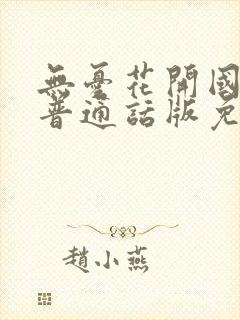 無憂花開國
普通話版免
趙小燕